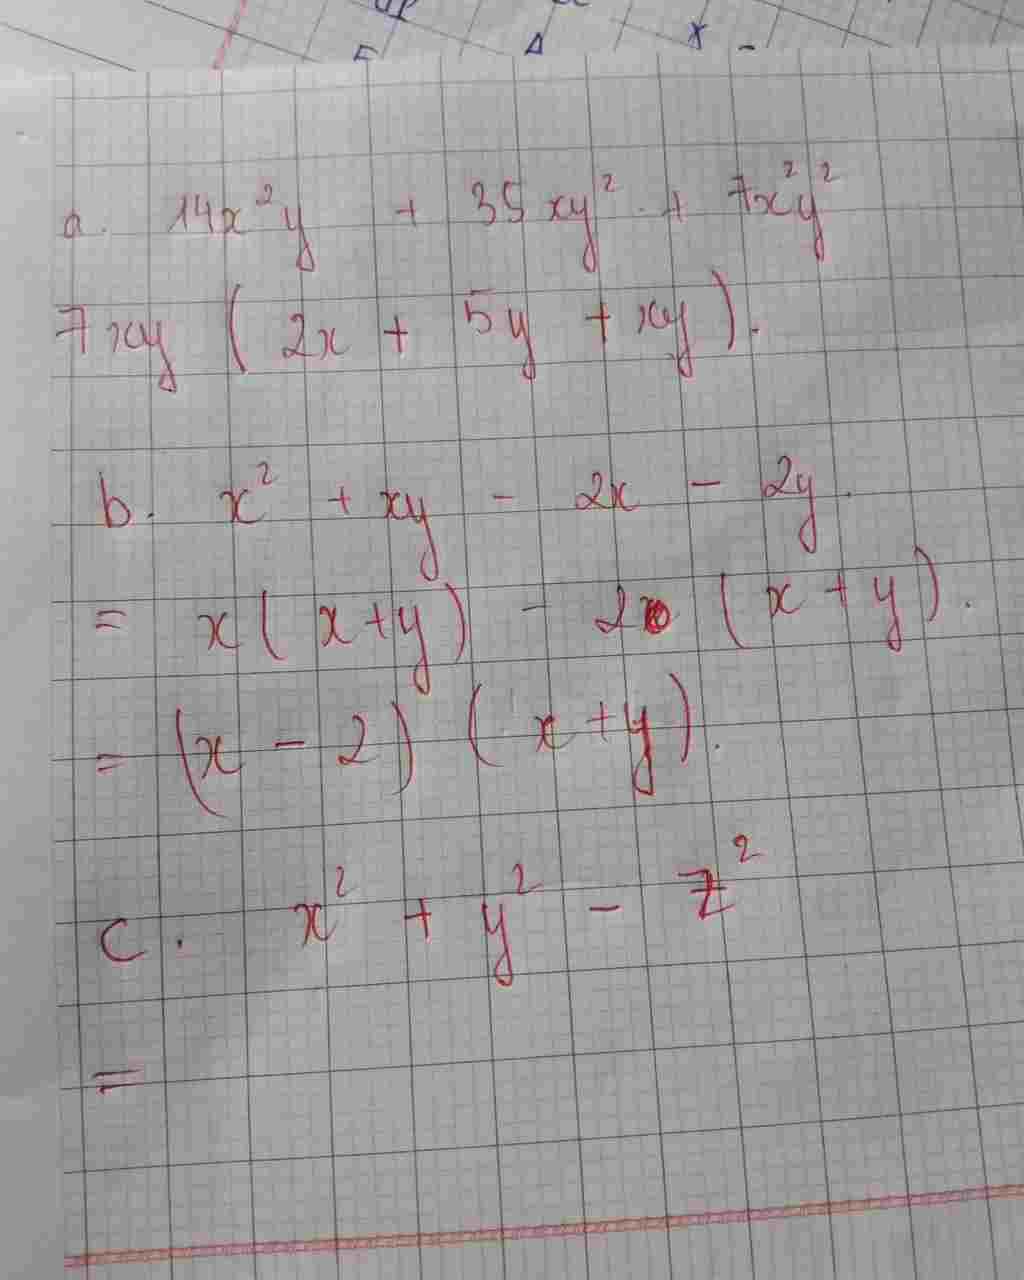 a. 14x²y + 35xy² + 7x²y²
7xy ( 2x + 5y + xy ).
b. x² + xy - 2x - 2y.
= x( x+y) - 2 ( x + y ).
= (x - 2) ( x+y).
c. x² + y² - z²
=